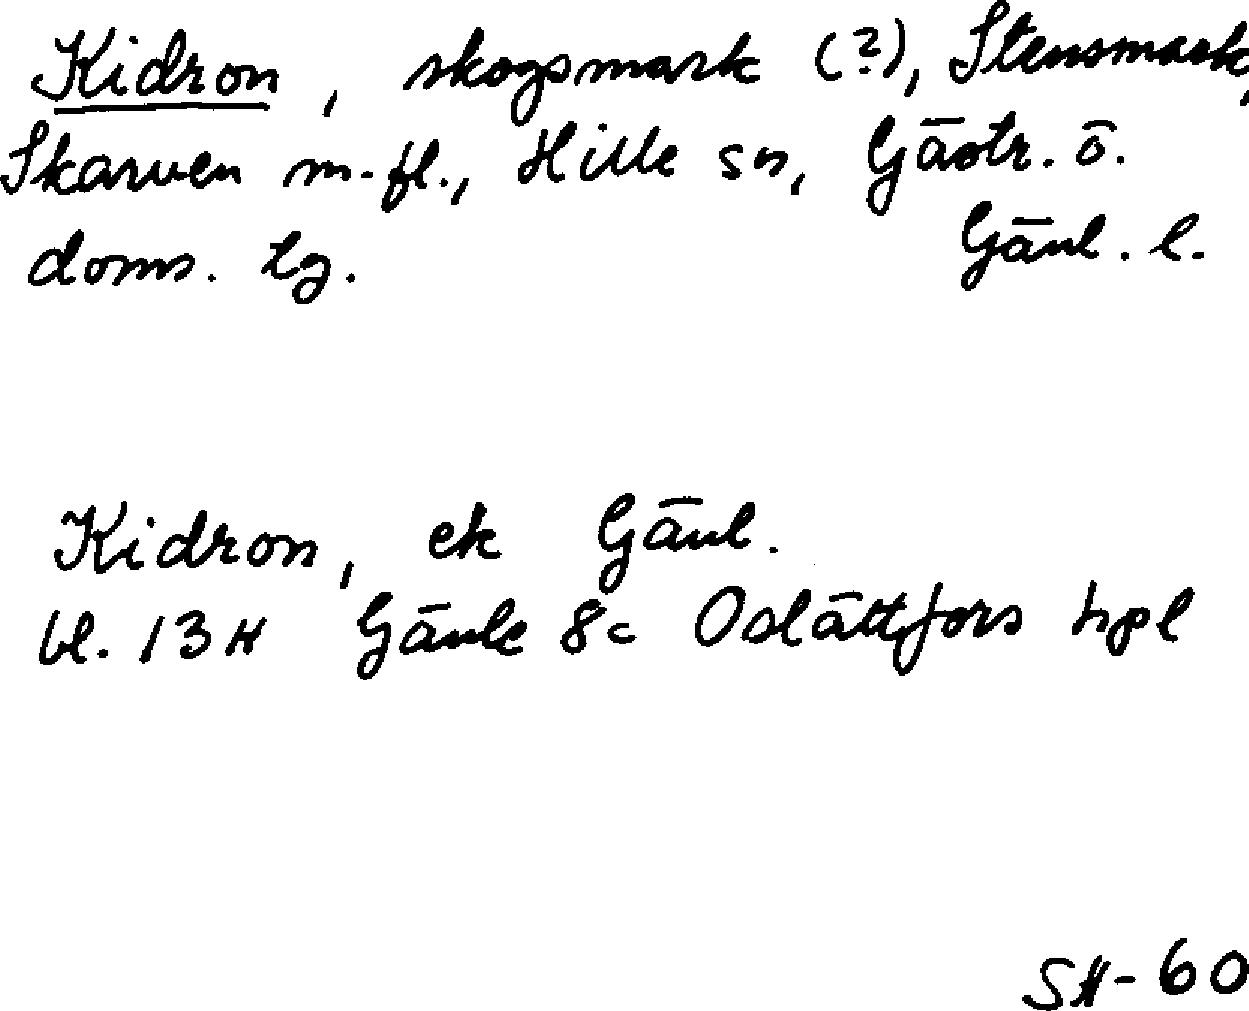 Kidron, skogsmark (?), Stensmark,
Skarven m. fl., Hille sn, Gästr. ö.
doms. tg. Gävl. l.
Kidron, ek Gävl.
bl. 13H Gävle 8c Oslättfors hpl
SH-60